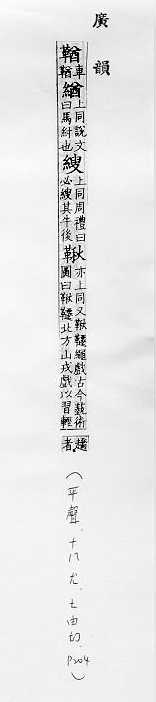 廣韻
鞧車鞧緧上同說文曰馬紂也䋺上同周禮曰必䋺其牛後鞦亦上同又鞦韆繩戲古今藝術圖曰鞦韆北方山戎戲以習輕趫者
(平聲、十八尤、七由切、P204)